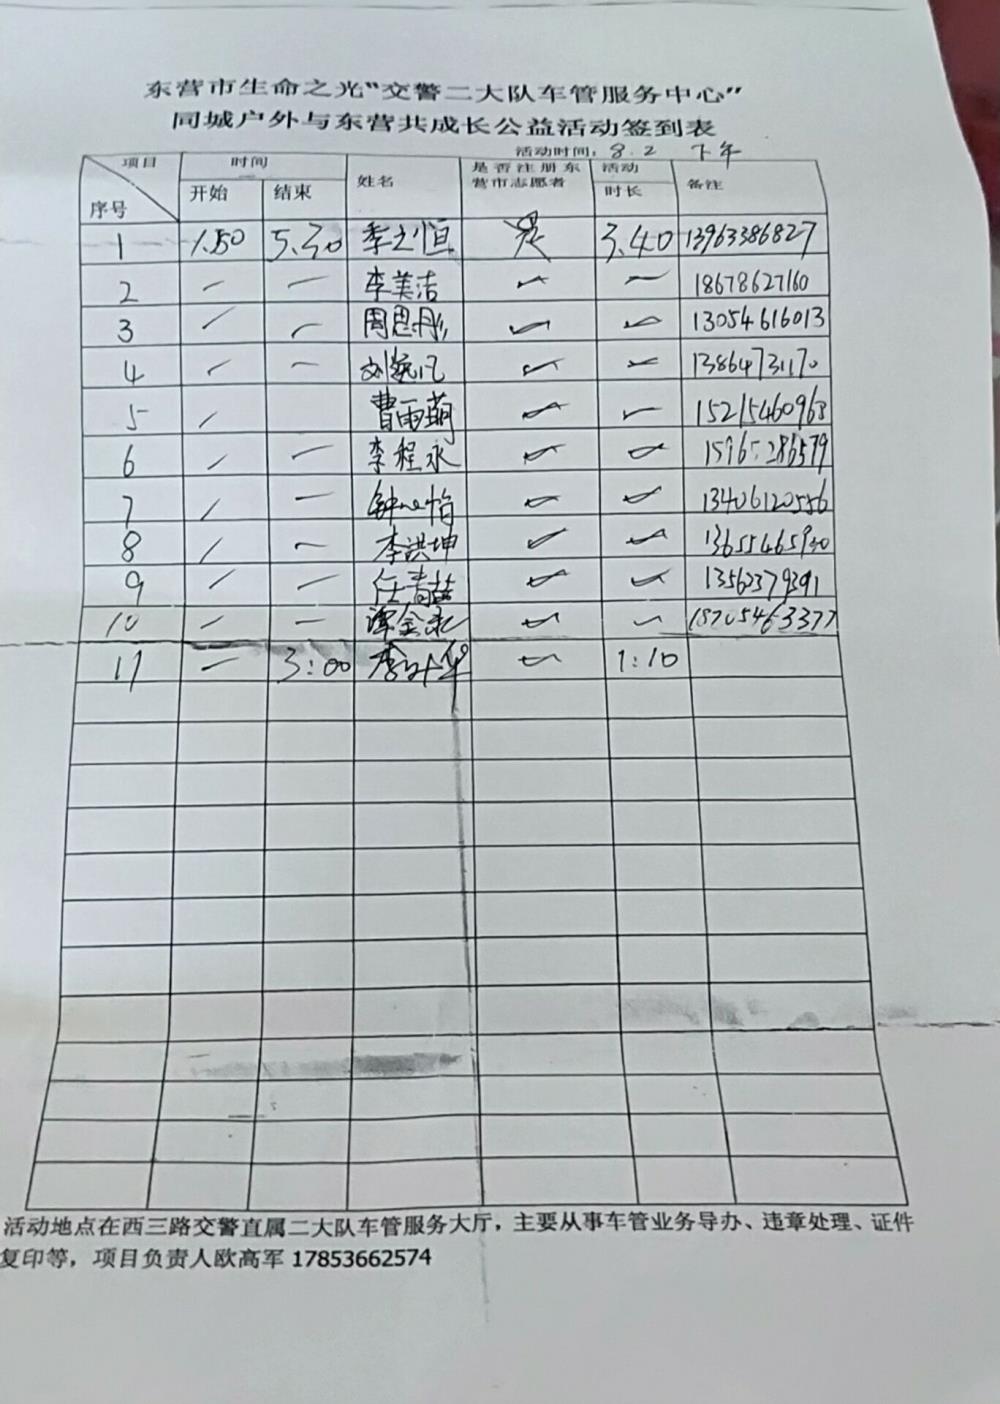 东营市生命之光“交警二大队车管服务中心”
同城户外与东营共成长公益活动签到表
活动时间：8.2 下午
项目 时间 姓名 是否注册东营市志愿者 活动时长 备注
序号 开始 结束
1 1.50 5.30 李之恒 是 3.40 13963386827
2 李美洁 18678627160
3 周思彤 13054616013
4 刘 凡 13864731170
5 曹雨萌 15215460963
6 李程永 15965286579
7 钟 怡 13406120556
8 李洪坤 13655465930
9 任青 13562379391
10 谭金 18705463377
11 3:00 李 华 1:10
活动地点在西三路交警直属二大队车管服务大厅，主要从事车管业务导办、违章处理、证件
复印等，项目负责人欧高军 17853662574